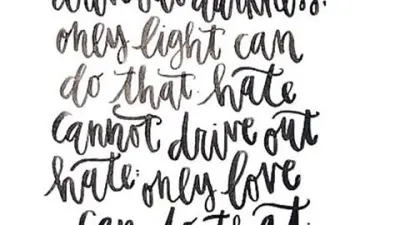 darkness:
only light can
do that. hate
cannot drive out
hate: only love
can do that